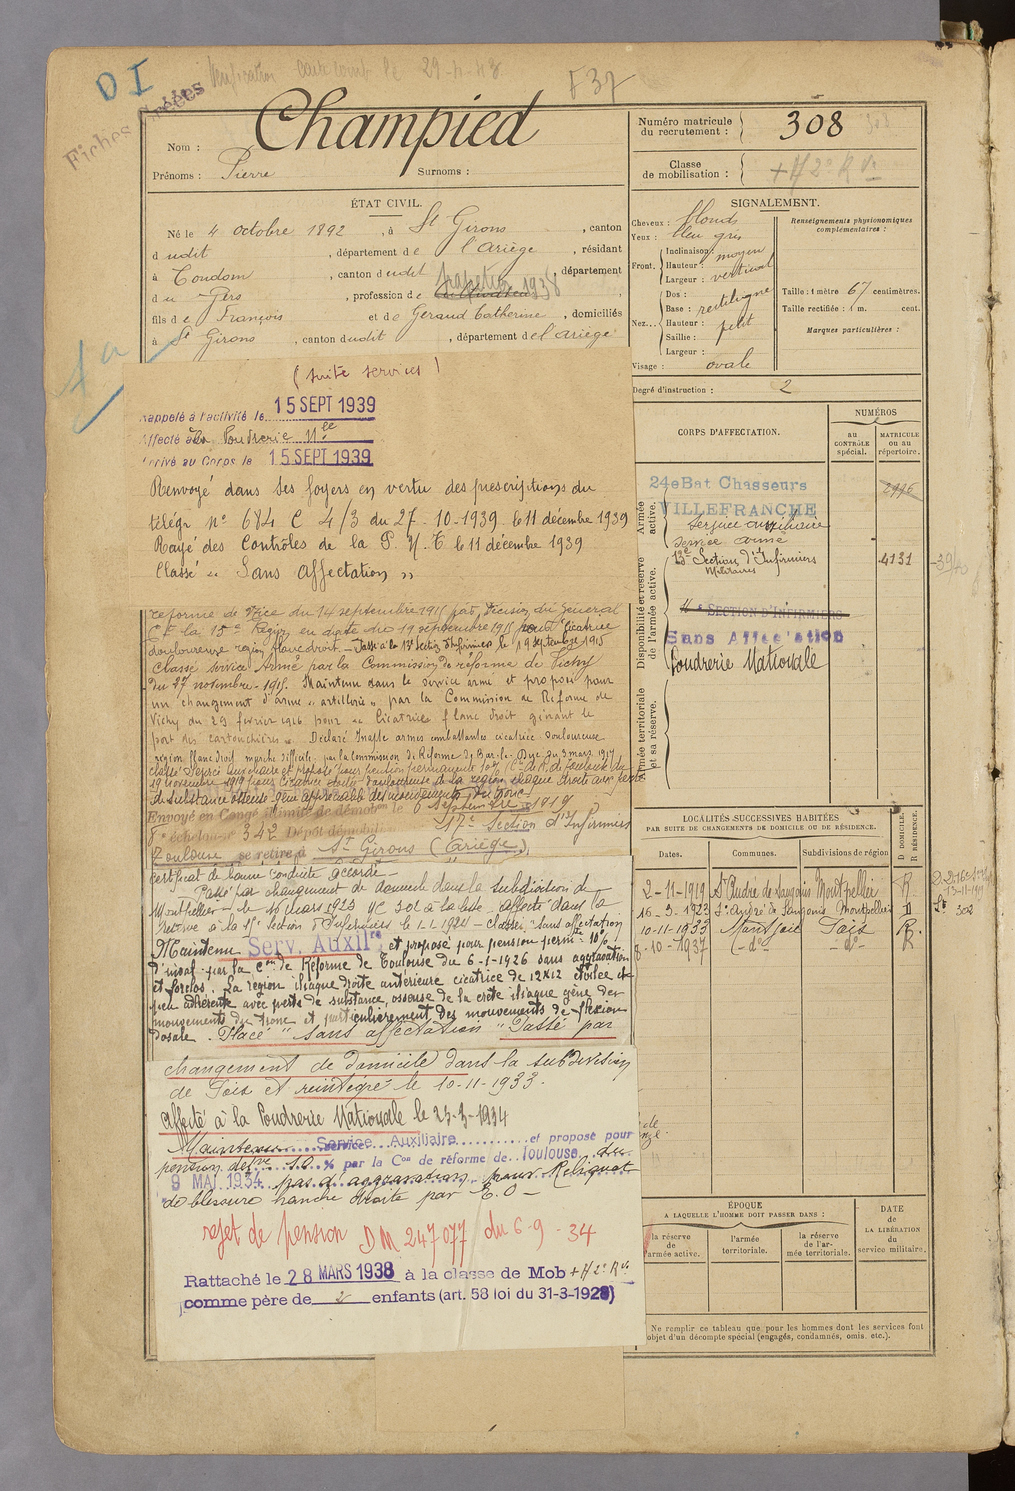 D I
Fiches Créées
29-4-43
F 37
Nom : Champied
Prénoms : Pierre Surnoms :
Numéro matricule du recrutement : 308
Classe de mobilisation :
ÉTAT CIVIL.
Né le 4 octobre 1892, à St Girons, canton
dudit, département de l'Ariège, résidant
à Condom, canton dudit, département
du Gers, profession de 1938
fils de François et de Geraud Catherine, domiciliés
à St Girons, canton dudit, département de l'ariège
SIGNALEMENT.
Cheveux : blonds
Yeux : bleu gris
Front. Inclinaison : moyen
Hauteur : vertical
Largeur :
Nez... Dos : rectiligne
Base :
Hauteur : petit
Saillie :
Largeur :
Visage : ovale
Renseignements physionomiques complémentaires :
Taille : 1 mètre 67 centimètres.
Taille rectifiée : 1 m. cent.
Marques particulières :
Degré d'instruction : 2
(suite services)
Rappelé à l'activité le 15 SEPT 1939
Affecté à la Poudrerie Nle
Arrivé au Corps le 15 SEPT 1939
Renvoyé dans ses foyers en vertu des prescriptions du
télégr n° 684 C 4/3 du 27-10-1939 le 11 décembre 1939
Rayé des Contrôles de la P. N. T. le 11 décembre 1939
Classé « Sans affectation »
réforme de Nice du 14 septembre 1915 par décision du Général
la 15e Région en date du 19 septembre 1915 pour cicatrice
douloureuse région flanc droit. - Passé à la 15e Section d'Infirmiers le 19 septembre 1915
Classé service Armé par la Commission de réforme de Vichy
du 27 novembre 1915. Maintenu dans le service armé et proposé pour
un changement d'arme « artillerie » par la Commission de Réforme de
Vichy du 29 février 1916 pour « Cicatrices flanc droit gênant le
port des cartouchières ». Déclaré Inapte armes combattantes cicatrice douloureuse
région flanc droit, marche difficile par la commission de Réforme de Bar-le-Duc du 3 mars 1917
19 novembre 1919 pour cicatrice étoilée douloureuse de la région iliaque droite avec perte
de substance osseuse gêne appréciable des mouvements du tronc
Envoyé en Congé illimité de démobon le 6 Septembre 1919
8e échelon n° 342 Dépôt démobil 17e Section d'Infirmiers
Toulouse se retire à St Girons (Ariège)
Certificat de bonne conduite accordé
Passé par changement de domicile dans la subdivision de
Montpellier le 16 mars 1923 affecté dans la
réserve à la Section d'Infirmiers le 1.1.1924 - Classé "Sans affectation"
Maintenu Serv. Auxilre et proposé pour pension perm. 10%
d'inval. par la Con de Réforme de Toulouse du 6-1-1926 sans aggravation
et forclos. La région iliaque droite antérieure cicatrice de 12x12 étoilée et
peu adhérente avec perte de substance, osseuse de la crête iliaque gêne des
mouvements du tronc et particulièrement des mouvements de flexion
dorsale. Placé "sans affectation" Passé par
changement de domicile dans la subdivision
de Foix et réintégré le 10-11-1933.
Affecté à la Poudrerie Nationale le 23-3-1934
Maintenu Service Auxiliaire et proposé pour
pension défve 10 % par la Con de réforme de Toulouse du
9 MAI 1934 pas d'aggravation pour Reliquat
de blessure hanche droite par E. O -
rejet de pension DM 247077 du 6-9-34
Rattaché le 28 MARS 1938 à la classe de Mob
comme père de 2 enfants (art. 58 loi du 31-3-1928)
CORPS D'AFFECTATION.
NUMÉROS
au contrôle spécial.
MATRICULE ou au répertoire.
Armée active.
24e Bat Chasseurs
VILLEFRANCHE
2995
Service auxiliaire
Service armé
Disponibilité et réserve de l'armée active.
15e Section d'Infirmiers Militaires 4131
SECTION D'INFIRMIERS
Sans Affectation
Poudrerie Nationale
Armée territoriale et sa réserve.
LOCALITÉS SUCCESSIVES HABITÉES
PAR SUITE DE CHANGEMENTS DE DOMICILE OU DE RÉSIDENCE.
Dates. Communes. Subdivisions de région D DOMICILE. R RÉSIDENCE.
2-11-1919 St André de Sangonis Montpellier R
16-3-1923 St André de Sangonis Montpellier D
10-11-1933 Montjoie Foix R.
8-10-1937 (-do -do- R
ÉPOQUE
A LAQUELLE L'HOMME DOIT PASSER DANS :
la réserve de l'armée active.
l'armée territoriale.
la réserve de l'armée territoriale.
DATE de LA LIBÉRATION du service militaire.
Ne remplir ce tableau que pour les hommes dont les services font
objet d'un décompte spécial (engagés, condamnés, omis, etc.).